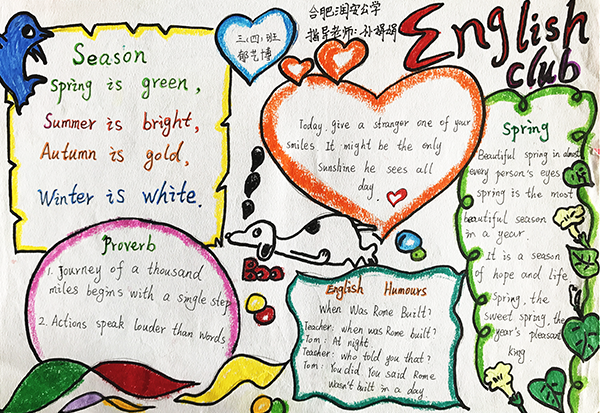 English
club
合肥润安公学
指导老师：孙娟娟
三（四）班
郁艺博
Season
Spring is green,
Summer is bright,
Autumn is gold,
Winter is white.
Today, give a stranger one of your
smiles. It might be the only
sunshine he sees all
day.
Spring
Beautiful spring in almost
every person's eyes
spring is the most
beautiful season
in a year.
It is a season
of hope and life
spring, the
sweet spring, the
year's pleasant
king
Proverb
1. Journey of a thousand
miles begins with a single step
2. Actions speak louder than words.
English Humours
When Was Rome Built?
Teacher: when was Rome built?
Tom: At night.
Teacher: who told you that?
Tom: You did. You said Rome
wasn't built in a day.